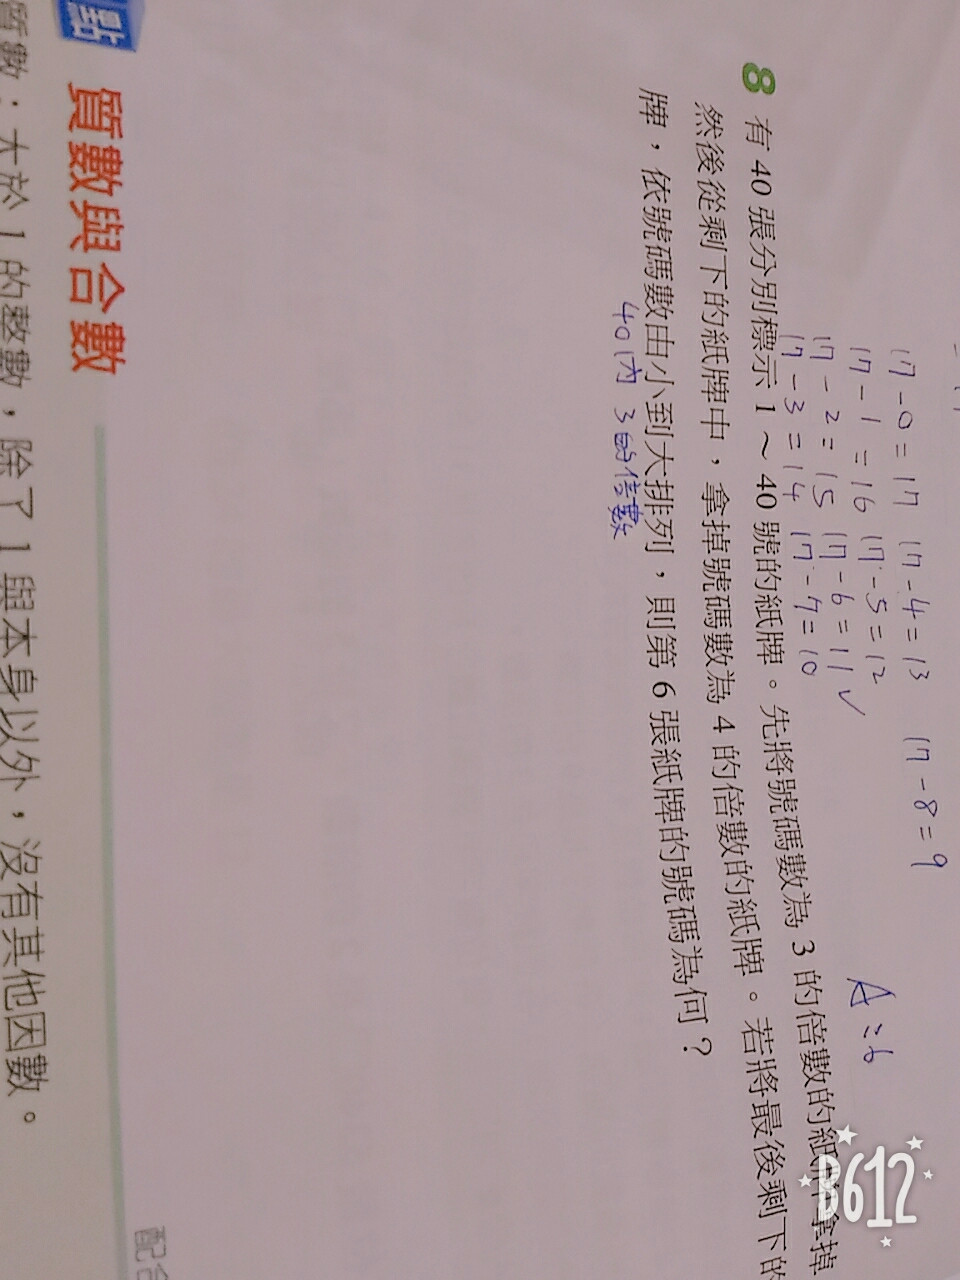 17-0=17 17-4=13 17-8=9
17-1=16 17-5=12
17-2=15 17-6=11✓
17-3=14 17-7=10
A=6
8 有 40 張分別標示 1～40 號的紙牌。先將號碼數為 3 的倍數的紙牌拿掉
然後從剩下的紙牌中，拿掉號碼數為 4 的倍數的紙牌。若將最後剩下的
牌，依號碼數由小到大排列，則第 6 張紙牌的號碼為何？
40內 3的倍數
點 質數與合數
質數：大於 1 的整數，除了 1 與本身以外，沒有其他因數。
配合
B612